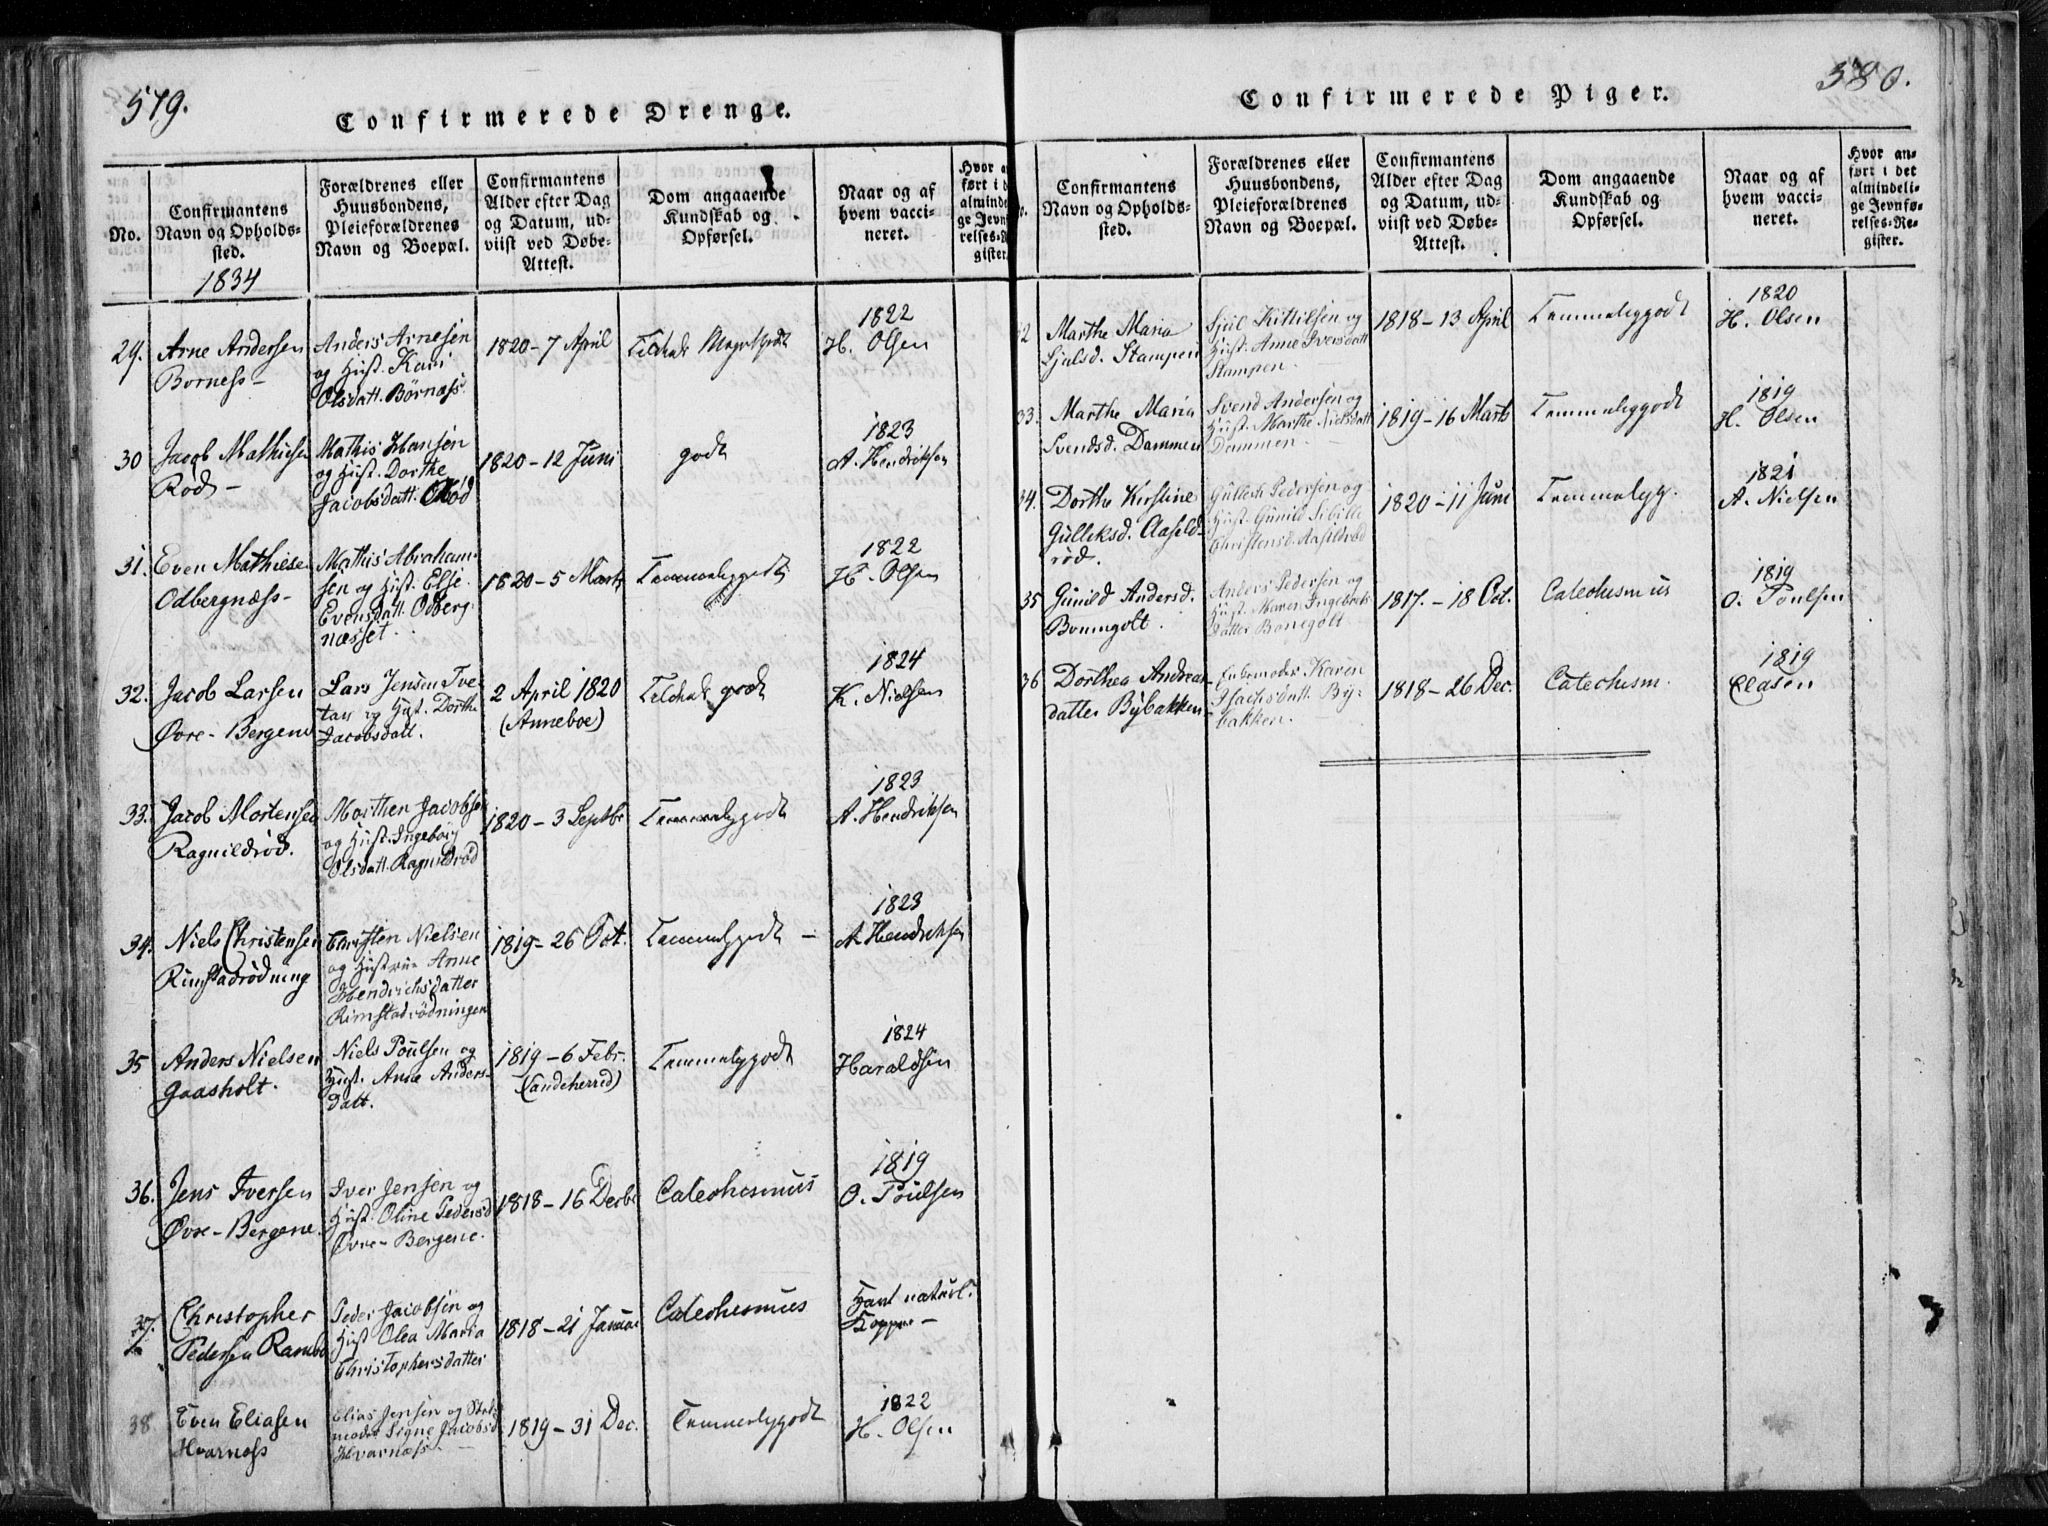 579.
Confirmerede Drenge.
No.
Confirmantens
Navn og Opholds-
sted.
1834
Forældrenes eller
Huusbondens,
Pleieforældrenes
Navn og Boepæl.
Confirmantens
Alder efter Dag
og Datum, ud-
viist ved Døbe-
Attest.
Dom angaaende
Kundskab og
Opførsel.
Naar og af
hvem vacci-
neret.
29.
Arne Andersen
Borness-
Anders Arnesen
og Hust. Kari
Olsdatt. Börnæss.
1820-7 April
1822
H. Olsen
30
Jacob Mathisen
Röd-
Mathis Hansen
og Hust. Dorthe
Jacobsdatt. Röd
1820-12 Juni
godt
1823
A. Hendriksen
31.
Even Mathiesen
Odbergnæss-
Mathis Abraham-
sen og Hust. Else
Evensdatt. Odberg-
næsset.
1820-5 Marts
Temmeliggodt
1822
H. Olsen
32.
Jacob Larsen
Øvre-Bergene
Lars Jensen Tve-
tan og Hust. Dorthe
Jacobsdatt.
2 April 1820
(Anneboe)
godt
1824
K. Nielsen
33.
Jacob Mortensen
Ragnildröd.
Morthen Jacobsen
og Hust. Ingeborg
Olsdatt. Ragnildröd
1820-3 Septbr
Temmeliggodt
1823
A. Hendriksen
34.
Niels Christensen
Rimstadrödning
Christen Nielsen
og Hustrue Anne
Hendrichsdatter
Rimstadrödningen
1819-26 Oct.
Temmeliggodt -
1823
A. Hendriksen
35
Anders Nielsen
Gaasholt.
Niels Poulsen og
Hust. Anne Anders-
datt.
1819-6 Febr.
(Sandeherred)
Temmeliggodt
1824
Haraldsen
36.
Jens Iversen
Øvre-Bergene.
Iver Jensen og
Hust. Oline Pedersd
Øvre-Bergene.
1818-16 Decbr
Catechesmus
1819
O. Poulsen
37.
Christopher
Pedersen Ramboe
Peder Jacobsen og
Hust Olea Maria
Christophersdatter
1818-21 Januar
Catechesmus
Havt naturl.
Kopper-
38.
Even Eliasen
Hvarness
Elias Jensen og Stif-
moder Signe Jacobsd.
Hvarnæss-
1819-31 Dec.
Temmeliggodt
1822
H. Olsen
380.
Confirmerede Piger.
Confirmantens
Navn og Opholds-
sted.
Forældrenes eller
Huusbondens,
Pleieforældrenes
Navn og Boepæl.
Confirmantens
Alder efter Dag
og Datum, ud-
viist ved Døbe-
Attest.
Dom angaaende
Kundskab og
Opførsel.
Naar og af
hvem vacci-
neret.
Hvor an-
ført i det
almindeli-
ge Jevnfø-
relses-Re-
gister.
Marthe Maria
Sjulsd. Stampen
Sjul Kittilsen og
Hust. Anne Iversdatt
Stampen.
1818-13 April
Temmeliggodt
1820
H. Olsen
33.
Marthe Maria
Svendsd. Dammen
Svend Andersen og
Hust. Marthe Nielsdatt
Dammen-
1819-16 Marts
Temmeliggodt
1819
H. Olsen
34.
Dorthe Kirstine
Gulleksd. Aaseld-
röd.
Gullech Pedersen og
Hust. Gunild Sibille
Christensd. Aaseldröd
1820-11 Juni
Temmelig g.
1821
A. Nielsen
35
Gunild Andersd.
Bonnegolt.
Anders Pedersen og
Hust. Maren Ingebrets-
datter Bonegolt
1817.-18 Oct.
Catechesmus
1819
O. Poulsen
36
Dorthea Andreas-
datter Bÿbakken
Enkemoder Karen
Isachsdatt. Bÿ-
bakken.
1818-26 Dec.
Catechesm.
1819
Clasen